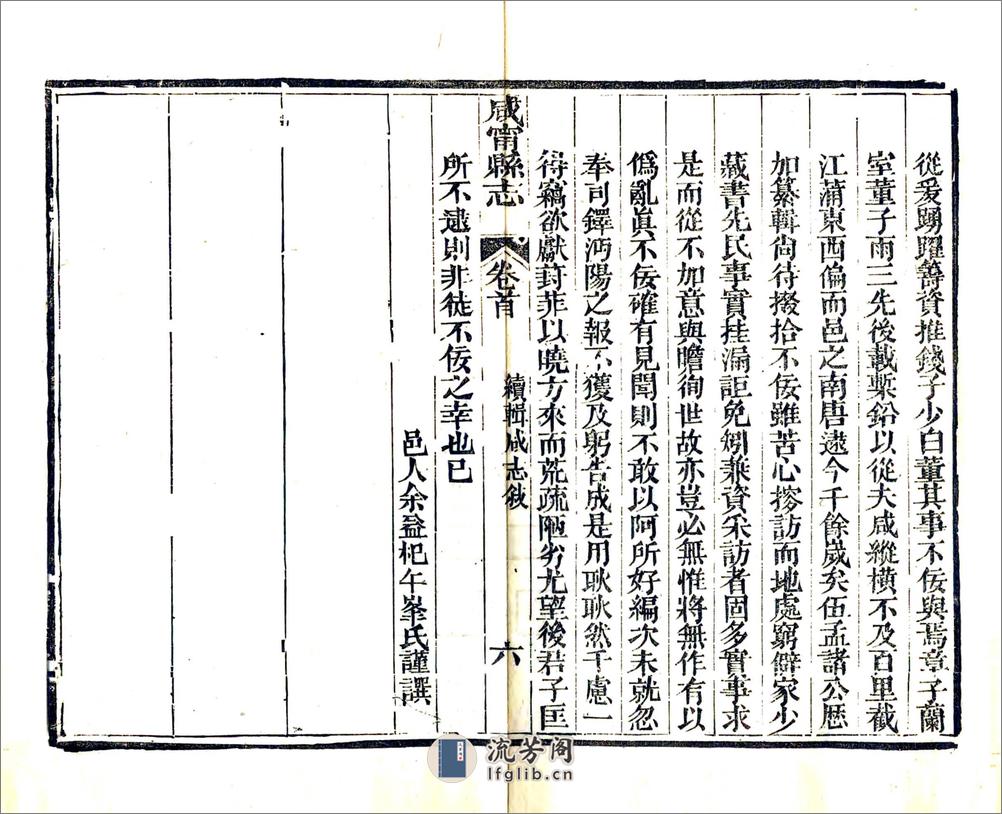 從爰踴躍籌資推錢子少白董其事不佞與焉章子蘭
室董子雨三先後載槧鉛以從夫咸縱橫不及百里截
江蒲東西偏而邑之南唐逮今千餘歲矣伍孟諸公歷
加纂輯尙待掇拾不佞雖苦心搜訪而地處窮僻家少
藏書先民事實挂漏詎免矧兼資采訪者固多實事求
是而從不加意與瞻徇世故亦豈必無惟將無作有以
僞亂眞不佞確有見聞則不敢以阿所好編次未就忽
奉司鐸沔陽之報不獲及躬告成是用耿耿然千慮一
得竊欲獻葑菲以曉方來而荒疏陋劣尤望後君子匡
咸甯縣志
卷首
續輯咸志敘
六
所不逮則非徒不佞之幸也已
邑人余益杞午峯氏謹譔
流芳阁
lfglib.cn